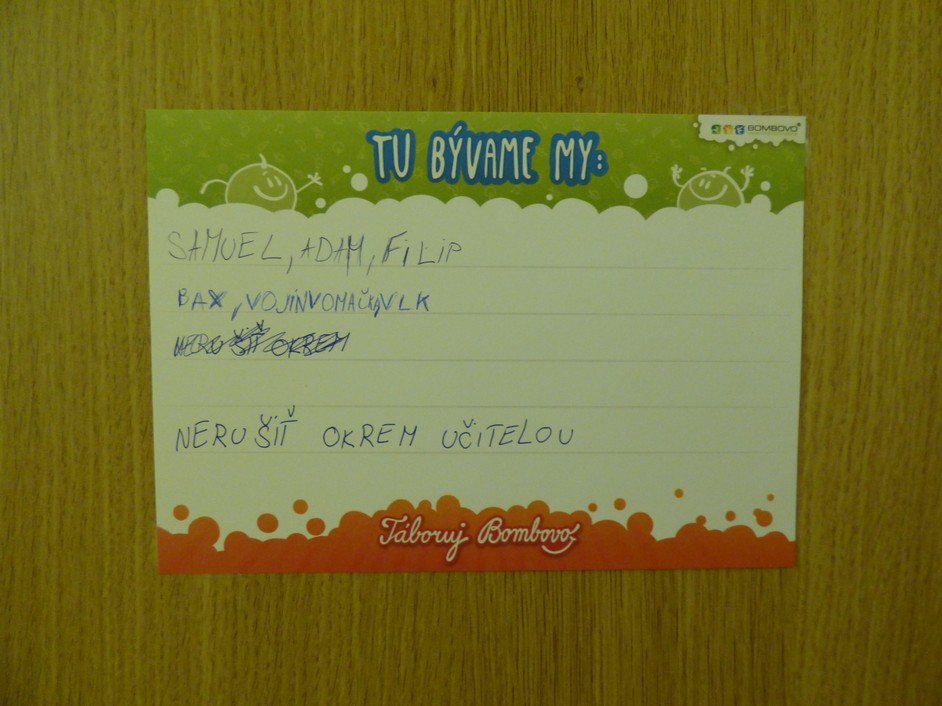 BOMBOVO
TU BÝVAME MY:
SAMUEL, ADAM, FiLiP
BAX, VOJÍNVOMAČKA,VLK
NERUŠIŤ OKREM
NERUŠIŤ OKREM UČITELOU
Táboruj Bombovo